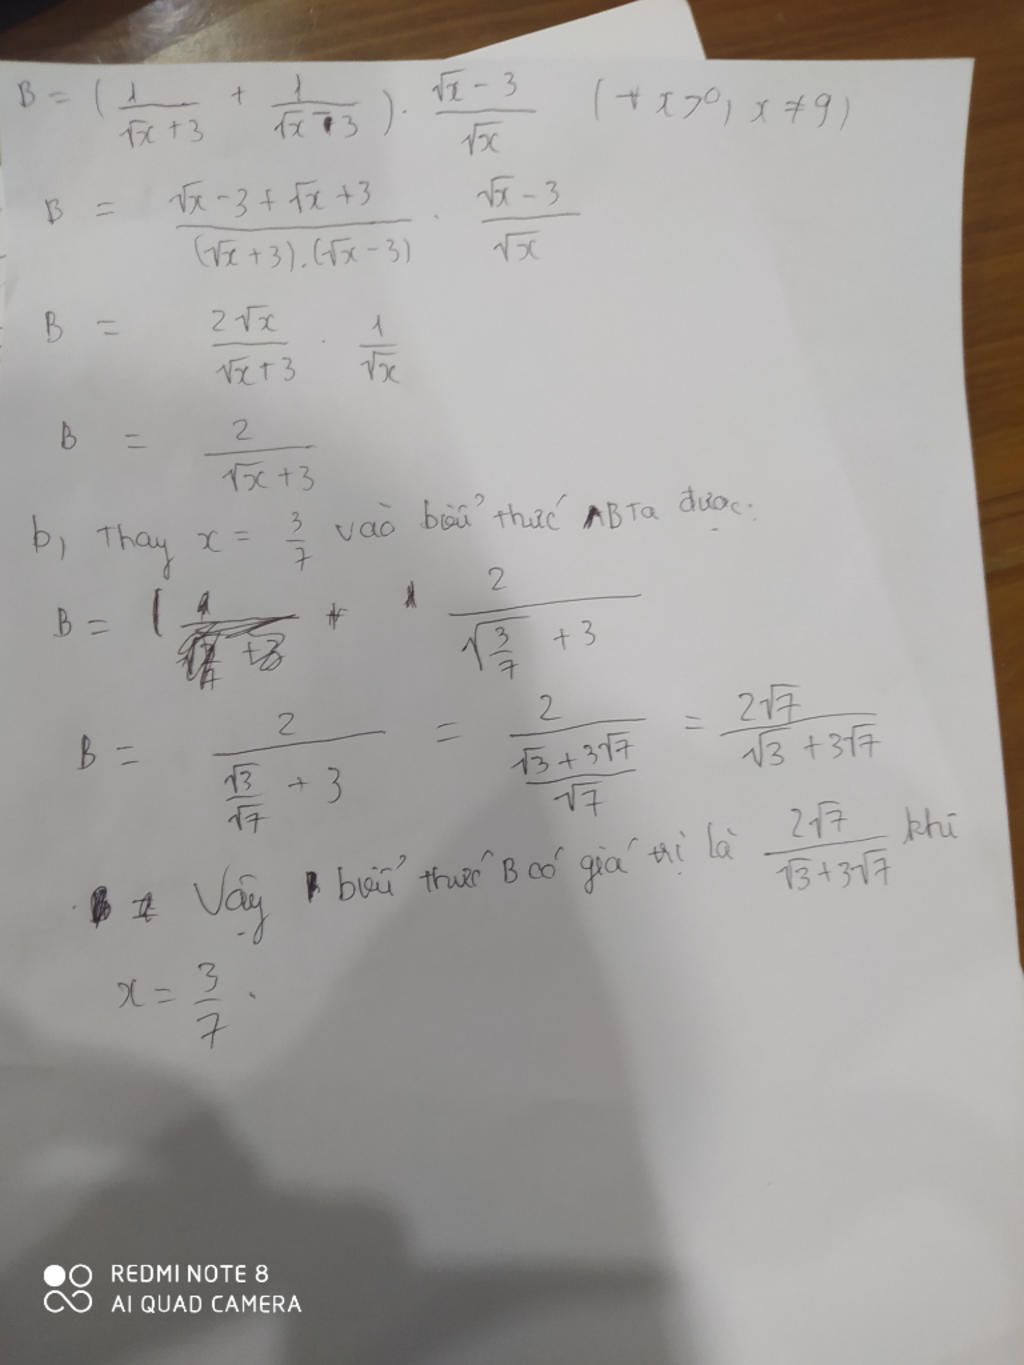 B = (1/(√x + 3) + 1/(√x - 3)) . (√x - 3)/√x (+ x > 0, x ≠ 9)
B = (√x - 3 + √x + 3)/((√x + 3).(√x - 3)) . (√x - 3)/√x
B = 2√x/(√x + 3) . 1/√x
B = 2/(√x + 3)
b, Thay x = 3/7 vào biểu thức B Ta được:
B = 2/(√(3/7) + 3)
B = 2/(√3/√7 + 3) = 2/((√3 + 3√7)/√7) = 2√7/(√3 + 3√7)
Vậy biểu thức B có giá trị là 2√7/(√3 + 3√7) khi
x = 3/7 .
REDMI NOTE 8
AI QUAD CAMERA